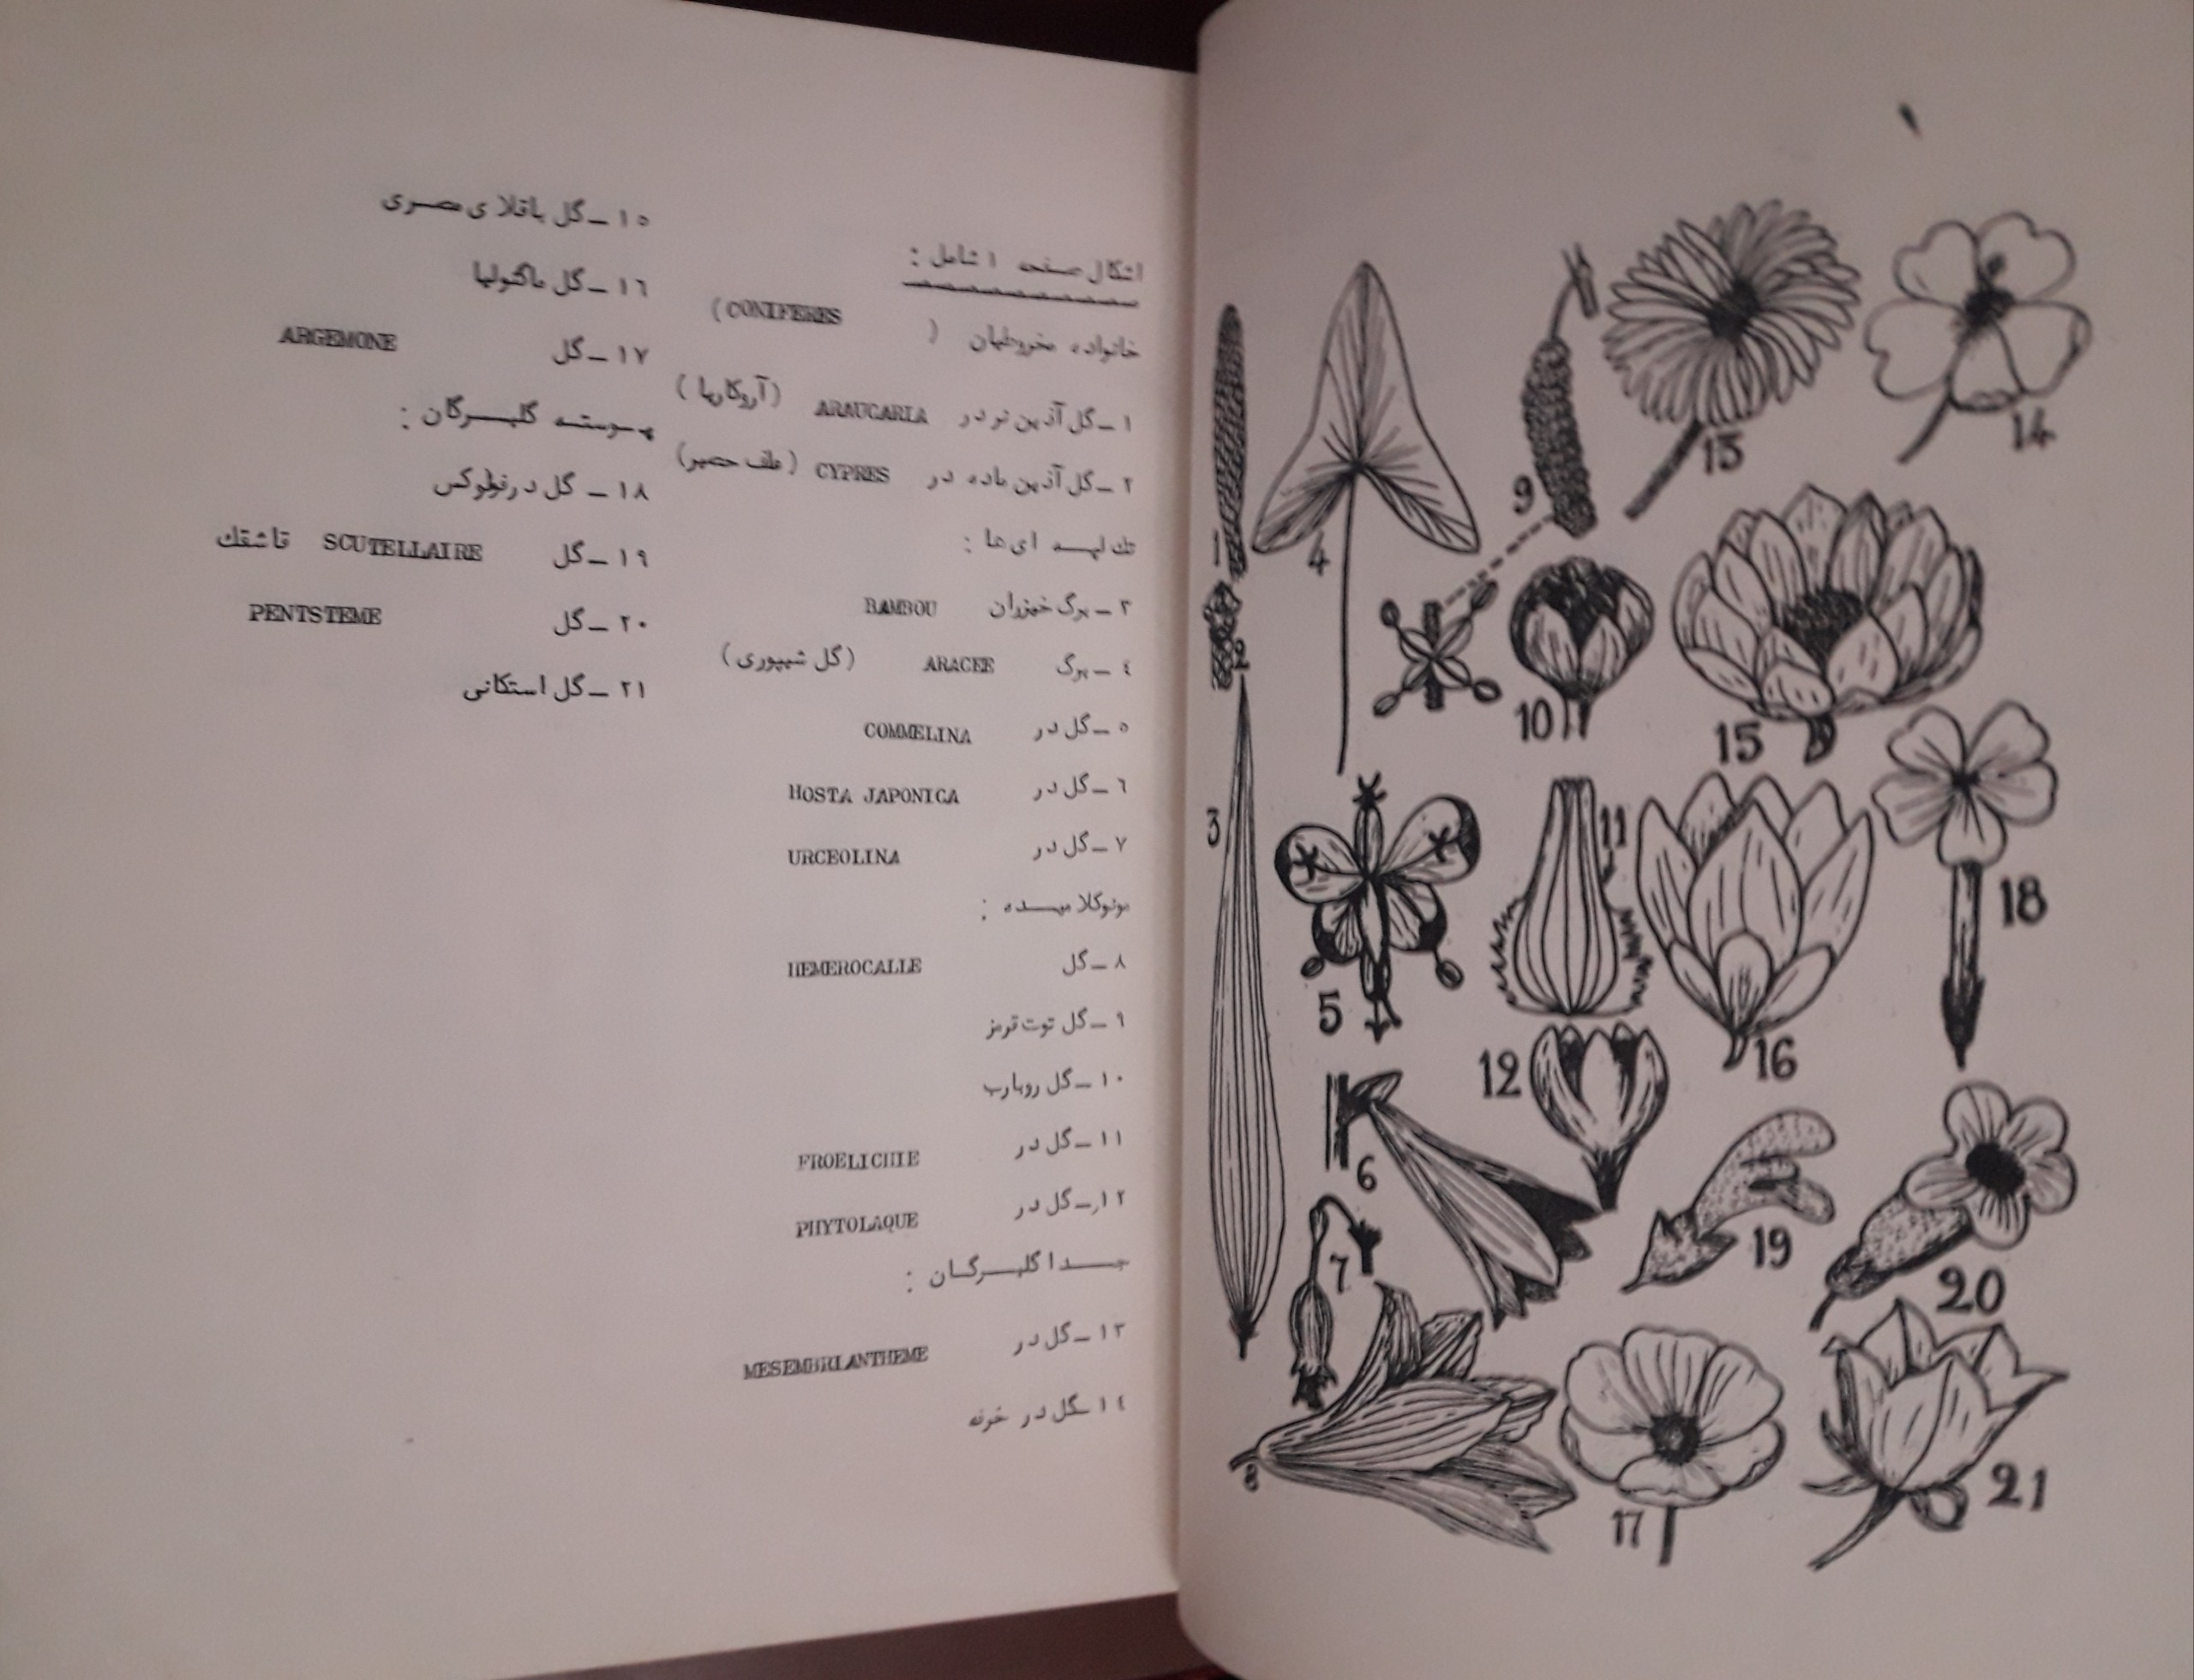 اشکال صفحه ۱ شامل :
خانواده مخروطیان ( CONIFERES )
۱ – گل آذین نر در ARAUCARIA (آروکاریا )
۲ – گل آذین ماده در CYPRES ( علف حصیر)
تك لپه ای ها :
۳ – برگ خیزران BAMBOU
٤ – برگ ARACEE (گل شیپوری )
۵ – گل در COMMELINA
٦ – گل در HOSTA JAPONICA
۷ – گل در URCEOLINA
مونوکلا میده :
۸ – گل HEMEROCALLE
۹ – گل توت قرمز
۱۰ – گل روبارب
۱۱ – گل در FROELICHIE
۱۲ – گل در PHYTOLAQUE
جدا گلبرگان :
۱۳ – گل در MESEMBRIANTHEME
۱٤ – گل در خرفه
۱۵ – گل باقلا ی مصری
۱٦ – گل ماگنولیا
۱۷ – گل ARGEMONE
پیوسته گلبرگان :
۱۸ – گل در فلوکس
۱۹ – گل SCUTELLAIRE قاشقك
۲۰ – گل PENTSTEME
۲۱ – گل استکانی
1
2
3
4
5
6
7
8
9
10
11
12
13
14
15
16
17
18
19
20
21